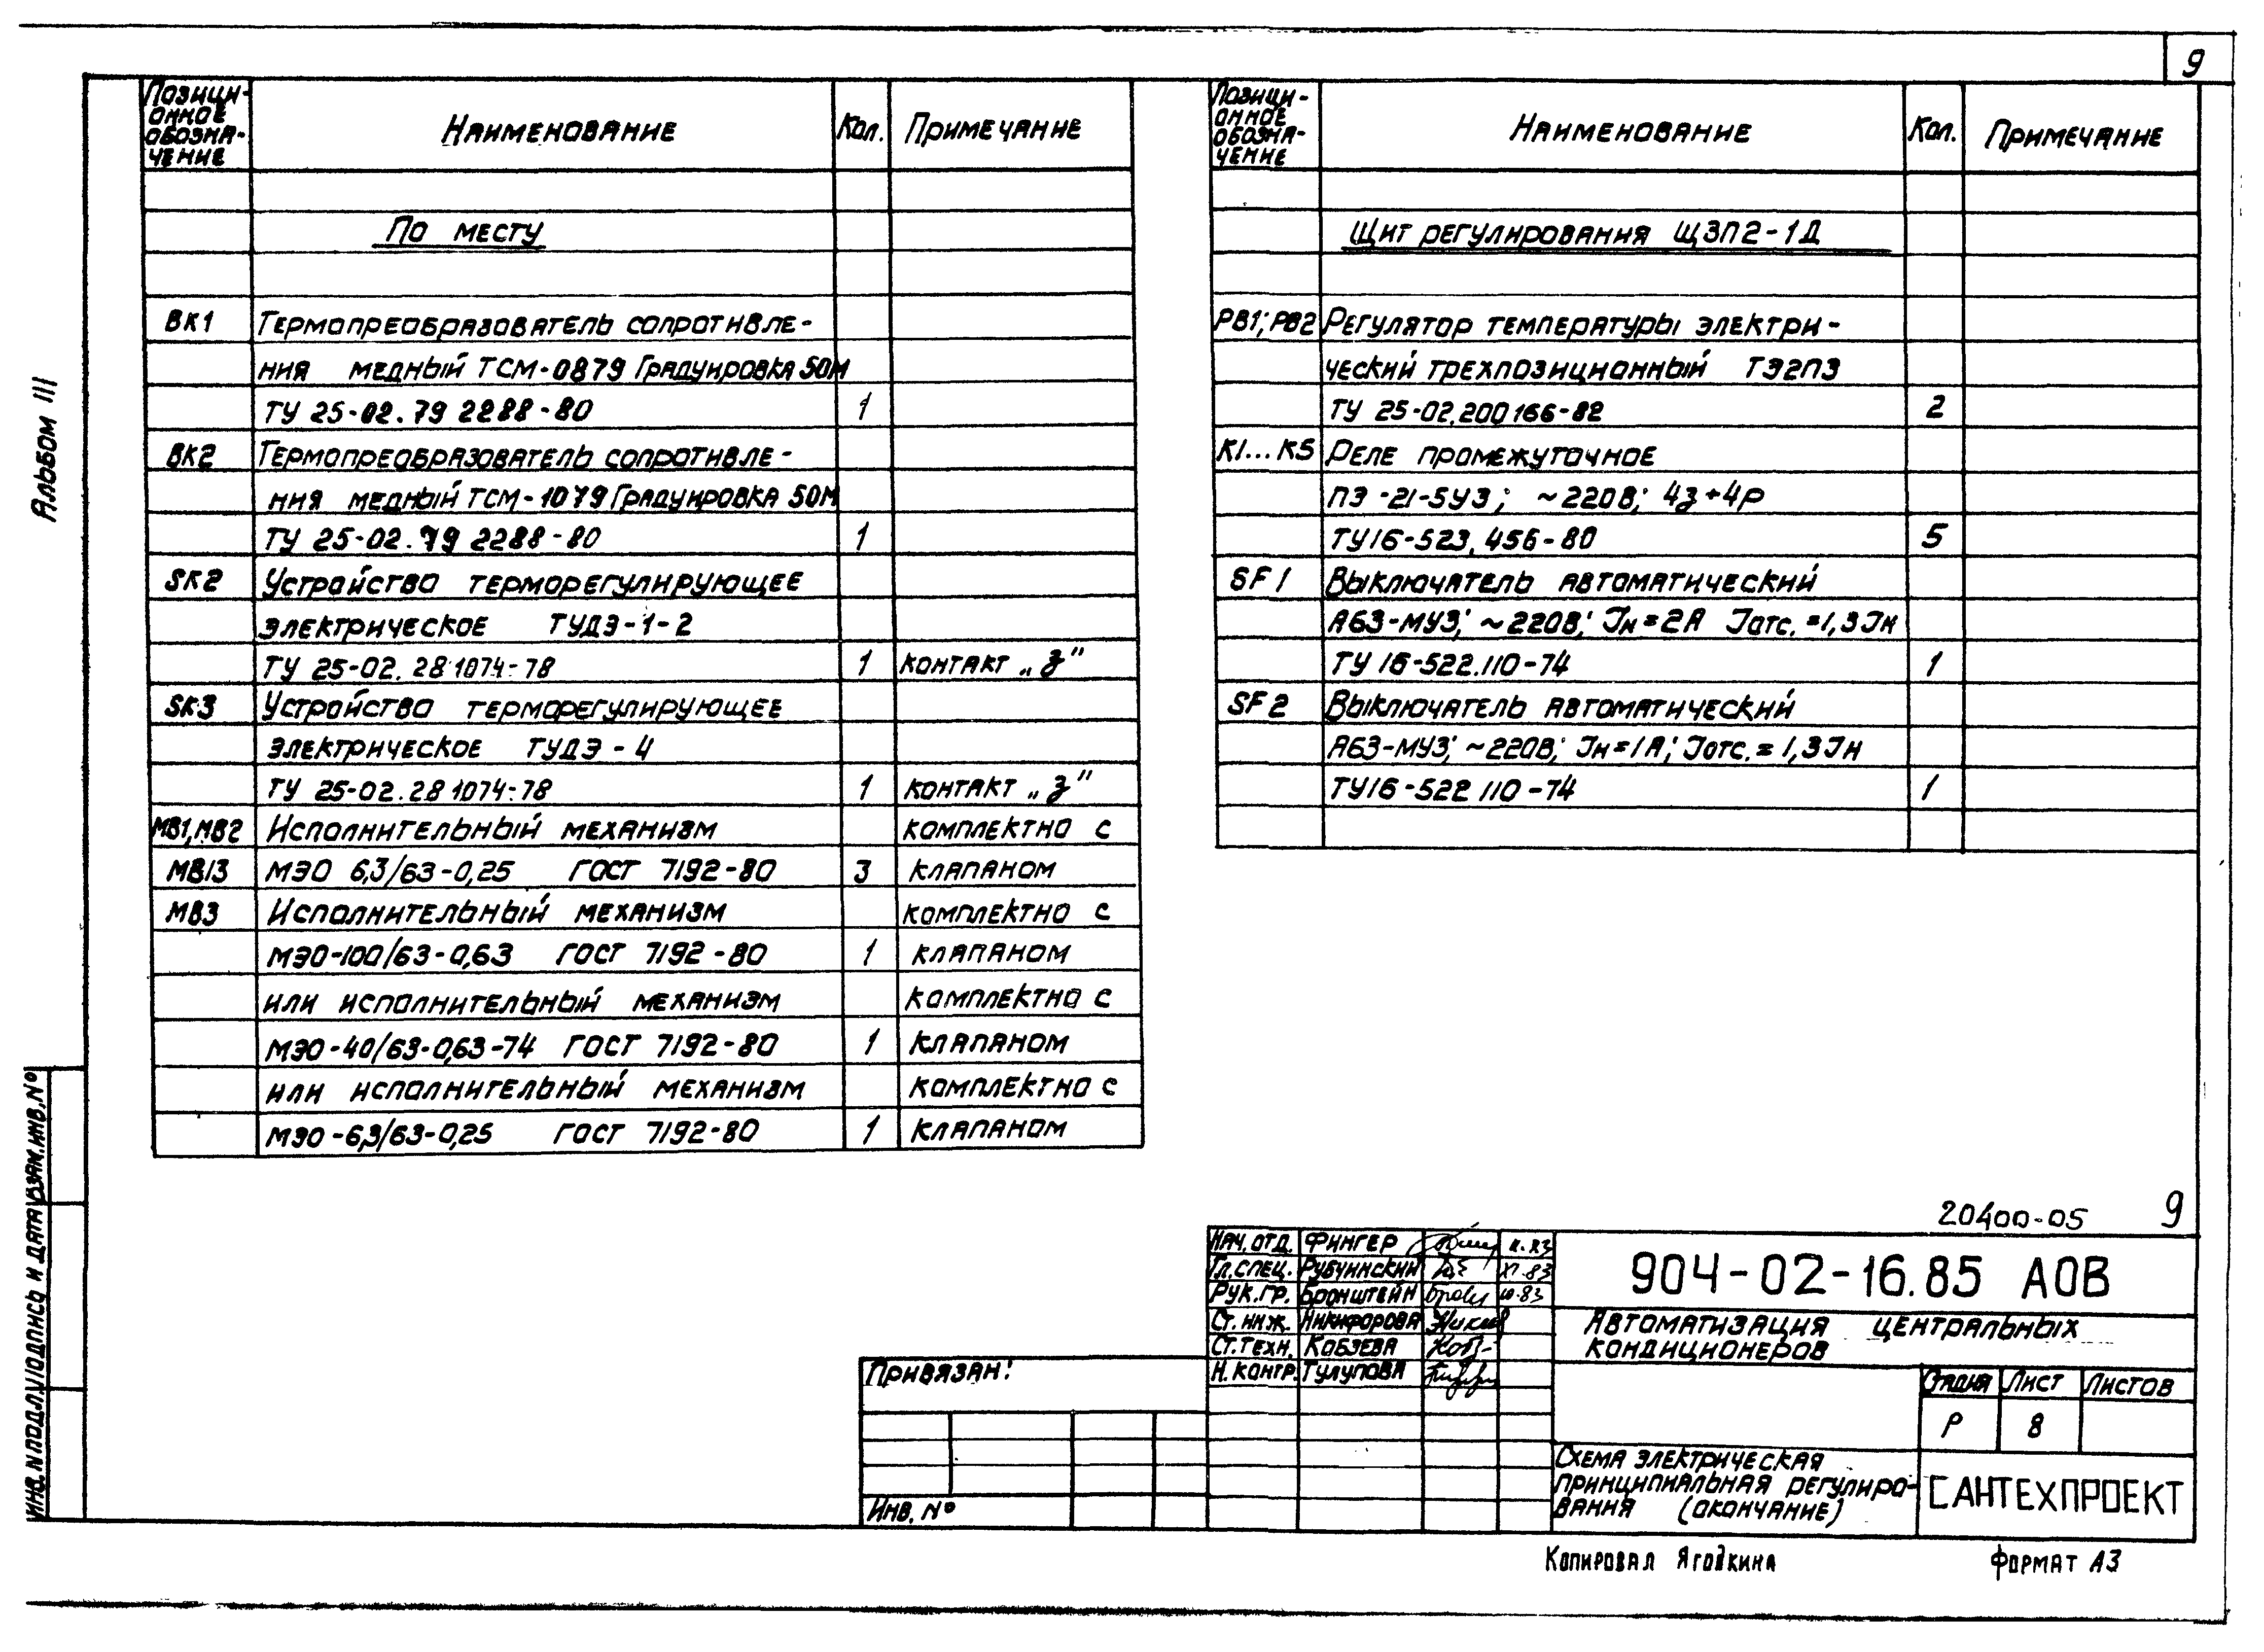 9
Альбом III
Позици-
онное
обозна-
чение
Наименование
Кол.
Примечание
По месту
ВК1 Термопреобразователь сопротивле-
ния медный ТСМ-0879 Градуировка 50М
ТУ 25-02.79 2288-80 1
ВК2 Термопреобразователь сопротивле-
ния медный ТСМ-1079 Градуировка 50М
ТУ 25-02.79 2288-80 1
SK2 Устройство терморегулирующее
электрическое ТУДЭ-1-2
ТУ 25-02.28 1074-78 1 контакт „з"
SK3 Устройство терморегулирующее
электрическое ТУДЭ-4
ТУ 25-02.28 1074-78 1 контакт „з"
МВ1, МВ2 Исполнительный механизм комплектно с
МВ13 МЭО 6,3/63-0,25 ГОСТ 7192-80 3 клапаном
МВ3 Исполнительный механизм комплектно с
МЭО-100/63-0,63 ГОСТ 7192-80 1 клапаном
или исполнительный механизм комплектно с
МЭО-40/63-0,63-74 ГОСТ 7192-80 1 клапаном
или исполнительный механизм комплектно с
МЭО-6,3/63-0,25 ГОСТ 7192-80 1 клапаном
Позици-
онное
обозна-
чение
Наименование
Кол.
Примечание
Щит регулирования ЩЗП2-1Д
РВ1; РВ2 Регулятор температуры электри-
ческий трехпозиционный ТЭ2П3
ТУ 25-02.200166-82 2
К1...К5 Реле промежуточное
ПЭ-21-5У3; ~220В; 4з+4р
ТУ16-523.456-80 5
SF1 Выключатель автоматический
А63-МУ3; ~220В; Iн=2А Iотс.=1,3Iн
ТУ 16-522.110-74 1
SF2 Выключатель автоматический
А63-МУ3; ~220В; Iн=1А; Iотс.=1,3Iн
ТУ16-522 110-74 1
20400-05 9
Нач. отд. Фингер
Гл. спец. Рубчинский XI.83
Рук. гр. Бронштейн
Ст. инж. Никифорова
Ст. техн. Кобзева
Н. контр. Тулупова
904-02-16.85 АОВ
Автоматизация центральных
кондиционеров
Стадия Лист Листов
Р 8
Схема электрическая
принципиальная регулиро-
вания (окончание)
САНТЕХПРОЕКТ
Привязан:
Инв. №
Инв. N подл. Подпись и дата Взам. инв. №
Копировал Ягодкина
Формат А3